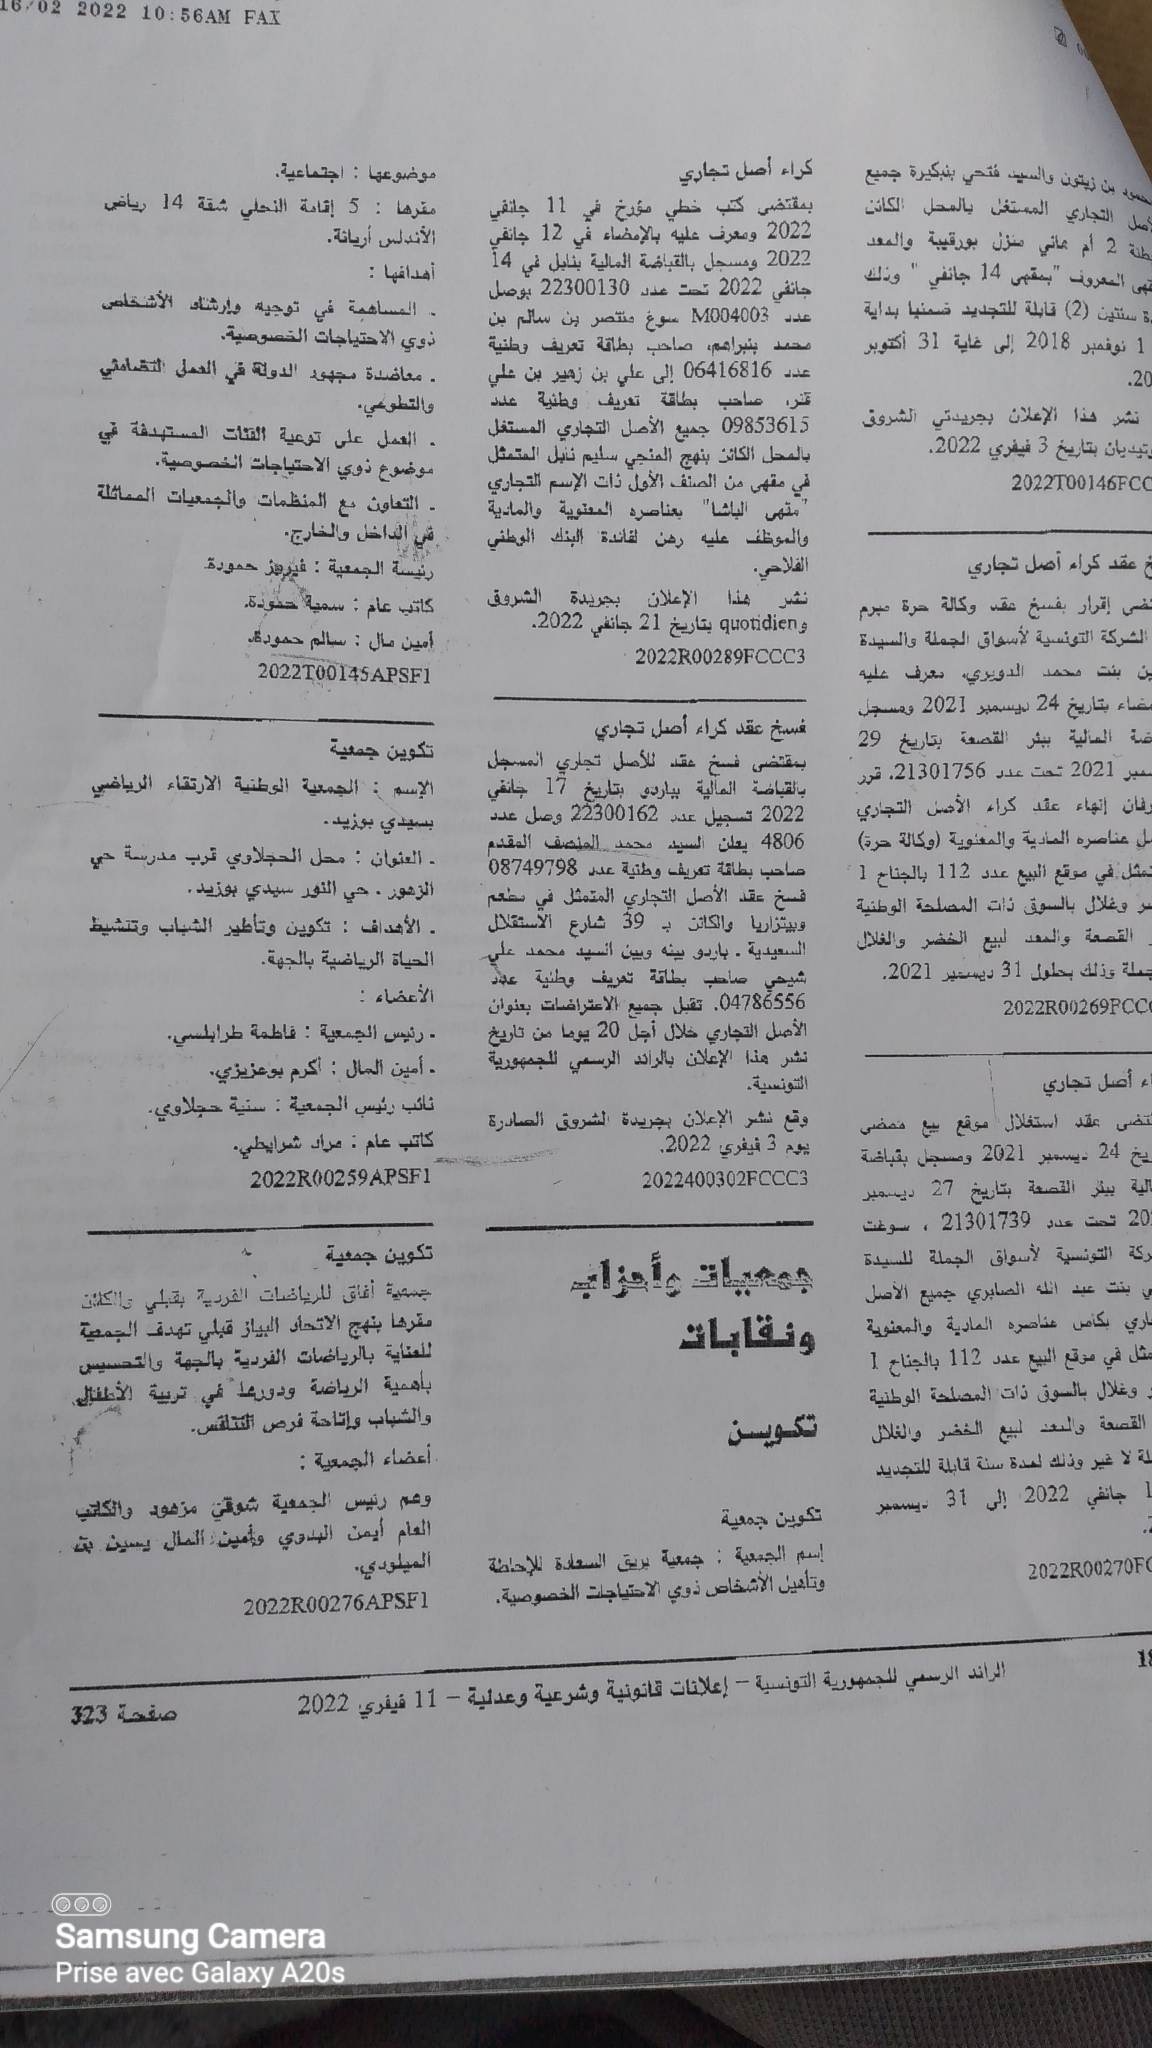 16/02 2022 10:56AM FAX
محمود بن زيتون والسيد فتحي بنبكيرة جميع
الأصل التجاري المستغل بالمحل الكائن
2 أم هاني منزل بورقيبة والمعد
المعروف "بمقهى 14 جانفي " وذلك
سنتين (2) قابلة للتجديد ضمنيا بداية
1 نوفمبر 2018 إلى غاية 31 أكتوبر
نشر هذا الإعلان بجريدتي الشروق
بتاريخ 3 فيفري 2022.
2022T00146FCC
عقد كراء أصل تجاري
إقرار بفسخ عقد وكالة حرة مبرم
الشركة التونسية لأسواق الجملة والسيدة
بنت محمد الدويري، معرف عليه
بتاريخ 24 ديسمبر 2021 ومسجل
المالية ببئر القصعة بتاريخ 29
2021 تحت عدد 21301756. قرر
إنهاء عقد كراء الأصل التجاري
عناصره المادية والمعنوية (وكالة حرة)
في موقع البيع عدد 112 بالجناح 1
وغلال بالسوق ذات المصلحة الوطنية
القصعة والمعد لبيع الخضر والغلال
وذلك بحلول 31 ديسمبر 2021.
2022R00269FCC
أصل تجاري
عقد استغلال موقع بيع ممضى
24 ديسمبر 2021 ومسجل بقباضة
ببئر القصعة بتاريخ 27 ديسمبر
تحت عدد 21301739 ، سوغت
التونسية لأسواق الجملة للسيدة
بنت عبد الله الصابري جميع الأصل
بكامل عناصره المادية والمعنوية
في موقع البيع عدد 112 بالجناح 1
وغلال بالسوق ذات المصلحة الوطنية
القصعة والمعد لبيع الخضر والغلال
لا غير وذلك لمدة سنة قابلة للتجديد
جانفي 2022 إلى 31 ديسمبر
2022R00270FC
كراء أصل تجاري
بمقتضى كتب خطي مؤرخ في 11 جانفي
2022 ومعرف عليه بالإمضاء في 12 جانفي
2022 ومسجل بالقباضة المالية بنابل في 14
جانفي 2022 تحت عدد 22300130 بوصل
عدد M004003 سوغ منتصر بن سالم بن
محمد بنبراهم، صاحب بطاقة تعريف وطنية
عدد 06416816 إلى علي بن زهير بن علي
قنر، صاحب بطاقة تعريف وطنية عدد
09853615 جميع الأصل التجاري المستغل
بالمحل الكائن بنهج المنجي سليم نابل المتمثل
في مقهى من الصنف الأول ذات الإسم التجاري
"مقهى الباشا" بعناصره المعنوية والمادية
والموظف عليه رهن لفائدة البنك الوطني
الفلاحي.
نشر هذا الإعلان بجريدة الشروق
وquotidien بتاريخ 21 جانفي 2022.
2022R00289FCCC3
فسخ عقد كراء أصل تجاري
بمقتضى فسخ عقد للأصل تجاري المسجل
بالقباضة المالية بباردو بتاريخ 17 جانفي
2022 تسجيل عدد 22300162 وصل عدد
4806 يعلن السيد محمد المنصف المقدم
صاحب بطاقة تعريف وطنية عدد 08749798
فسخ عقد الأصل التجاري المتمثل في مطعم
وبيتزاريا والكائن بـ 39 شارع الاستقلال
السعيدية ـ باردو بينه وبين السيد محمد علي
شيحي صاحب بطاقة تعريف وطنية عدد
04786556. تقبل جميع الاعتراضات بعنوان
الأصل التجاري خلال أجل 20 يوما من تاريخ
نشر هذا الإعلان بالرائد الرسمي للجمهورية
التونسية.
وقع نشر الإعلان بجريدة الشروق الصادرة
يوم 3 فيفري 2022.
2022400302FCCC3
جمعيات وأحزاب
ونقابات
تكويـن
تكوين جمعية
إسم الجمعية : جمعية بريق السعادة للإحاطة
وتأهيل الأشخاص ذوي الاحتياجات الخصوصية.
موضوعها : اجتماعية.
مقرها : 5 إقامة النحلي شقة 14 رياض
الأندلس أريانة.
أهدافها :
ـ المساهمة في توجيه وإرشاد الأشخاص
ذوي الاحتياجات الخصوصية.
ـ معاضدة مجهور الدولة في العمل التضامني
والتطوعي.
ـ العمل على توعية الفئات المستهدفة في
موضوع ذوي الاحتياجات الخصوصية.
ـ التعاون مع المنظمات والجمعيات المماثلة
في الداخل والخارج.
رئيسة الجمعية : فيروز حمودة.
كاتب عام : سمية حمودة.
أمين مال : سالم حمودة.
2022T00145APSF1
تكوين جمعية
الإسم : الجمعية الوطنية الارتقاء الرياضي
بسيدي بوزيد.
ـ العنوان : محل الحجلاوي قرب مدرسة حي
الزهور ـ حي النور سيدي بوزيد.
ـ الأهداف : تكوين وتأطير الشباب وتنشيط
الحياة الرياضية بالجهة.
الأعضاء :
ـ رئيس الجمعية : فاطمة طرابلسي.
ـ أمين المال : أكرم بوعزيزي.
نائب رئيس الجمعية : سنية حجلاوي.
كاتب عام : مراد شرايطي.
2022R00259APSF1
تكوين جمعية
جمعية أفاق للرياضات الفردية بقبلي والكائن
مقرها بنهج الاتحاد البياز قبلي تهدف الجمعية
للعناية بالرياضات الفردية بالجهة والتحسيس
بأهمية الرياضة ودورها في تربية الأطفال
والشباب وإتاحة فرص التنافس.
أعضاء الجمعية :
وهم رئيس الجمعية شوقي مزهود والكاتب
العام أيمن البدوي وأمين المال يسين بن
الميلودي.
2022R00276APSF1
الرائد الرسمي للجمهورية التونسية – إعلانات قانونية وشرعية وعدلية – 11 فيفري 2022
صفحة 323
Samsung Camera
Prise avec Galaxy A20s